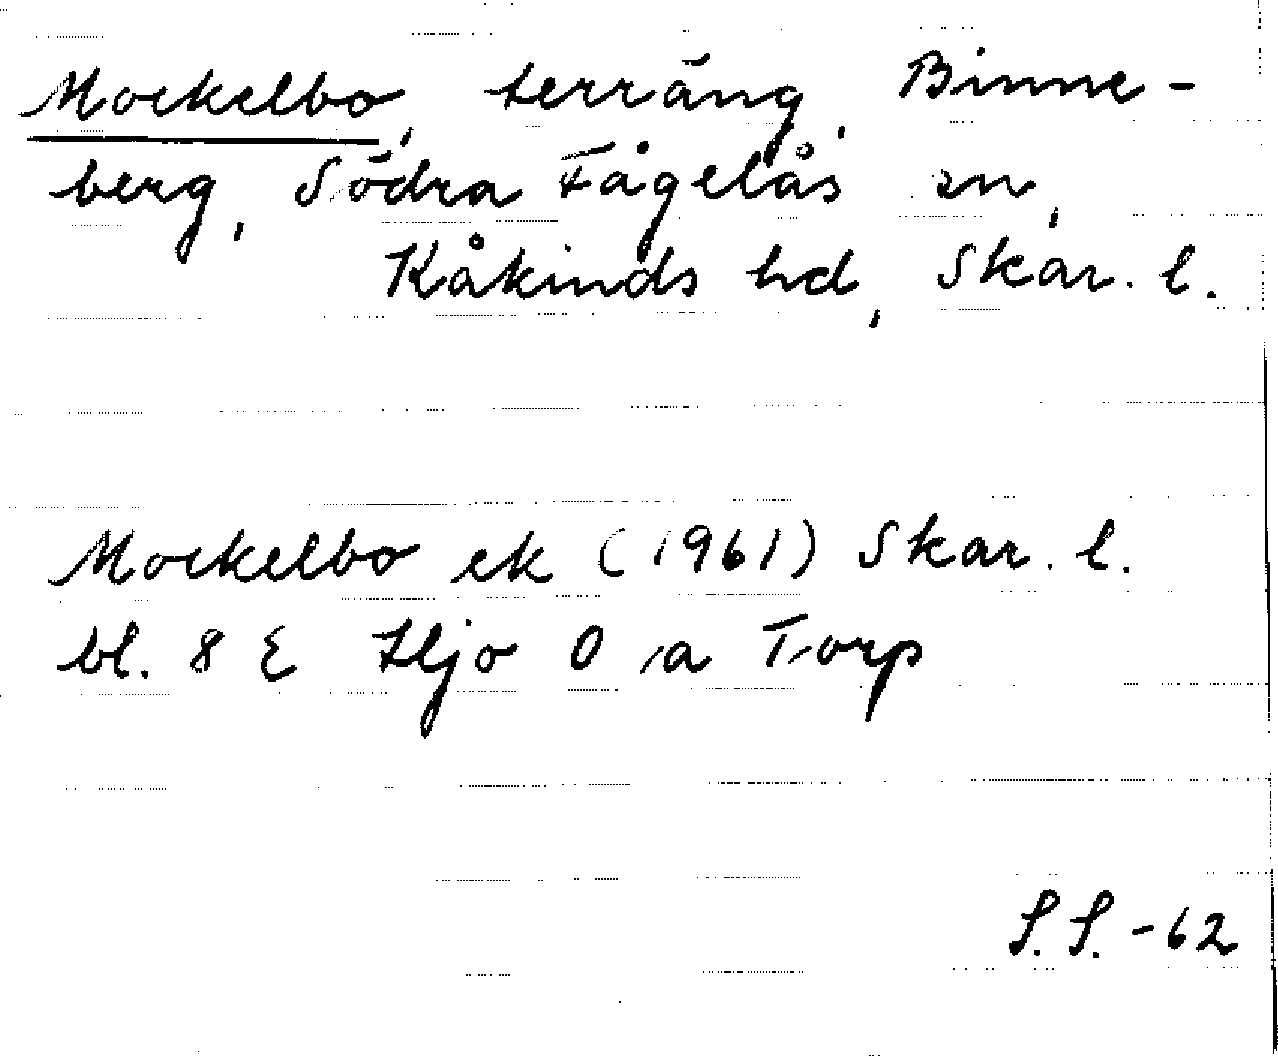 Mockelbo, terräng, Binne-
berg, Södra Fågelås sn,
Kåkinds hd, Skar. l.
Mockelbo ek (1961) Skar. l.
bl. 8 E Hjo 0 a Torp
S.S.-62